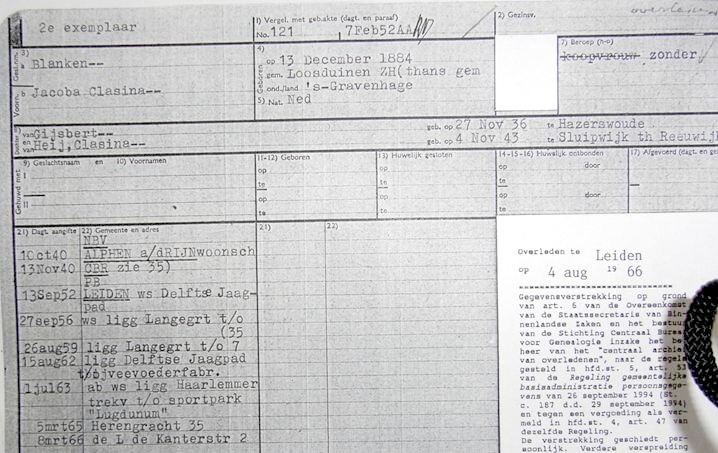 2e exemplaar
1) Vergel. met geb.akte (dagt. en paraaf)
No. 121 7Feb52AA
2) Gezinsv.
overleden
3)
a Blanken--
b Jacoba Clasina--
4)
op 13 December 1884
gem. Loosduinen ZH(thans gem
ond./land 's-Gravenhage
5) Nat. Ned
7) Beroep (h-o)
koopvrouw zonder
van Gijsbert-- geb. op 27 Nov 36 te Hazerswoude
en van Heij, Clasina-- geb. op 4 Nov 43 te Sluipwijk th Reeuwijk
9) Geslachtsnaam en 10) Voornamen
11-12) Geboren
13) Huwelijk gesloten
14-15-16) Huwelijk ontbonden
17) Afgevoerd (dagt. en ge
Gehuwd met:
I op op op door I
te te te
II op op op door. II
te te te
21) Dagt. aangifte 22) Gemeente en adres
21) 22)
NBV
1Oct40 ALPHEN a/dRIJNwoonsch
13Nov40 CBR zie 35)
PB
13Sep52 LEIDEN ws Delftse Jaag-
pad
27sep56 ws ligg Langegrt t/o
(35
26aug59 ligg Langegrt t/o 7
15aug62 ligg Delftse Jaagpad
t/bjveevoederfabr.
1jul63 ab ws ligg Haarlemmer
trekv t/o sportpark
"Lugdunum"
5mrt65 Herengracht 35
8mrt66 de L de Kanterstr 2
Overleden te Leiden
op 4 aug 19 66
Gegevensverstrekking op grond
van art. 6 van de Overeenkomst
van de Staatssecretaris van Bin-
nenlandse Zaken en het bestuur
van de Stichting Centraal Bureau
voor Genealogie inzake het be-
heer van het "centraal archief
van overledenen", naar de regels
gesteld in hfd.st. 5, art. 53
van de Regeling gemeentelijke
basisadministratie persoonsge-
vens van 26 september 1994 (St.
c. 187 d.d. 29 september 1994)
en tegen een vergoeding als ver-
meld in hfd.st. 4, art. 47 van
dezelfde Regeling.
De verstrekking geschiedt per-
soonlijk. Verdere verspreiding